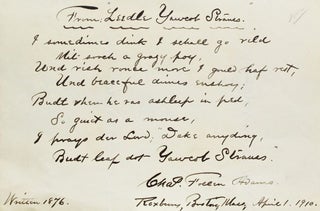 From "Leedle Yawcob Strauss."
I somedimes dink I schall go vild
Mit sooch a grazy poy,
Und vish vonce more I gould haf rest,
Und beaceful dimes enshoy;
Budt when he vas ashleep in ped,
So guiet as a mouse,
I prays der Lord, "Dake anyding,
Budt leaf dot Yawcob Strauss."
Chas. Follen Adams.
Written 1876.
Roxbury, Boston, Mass, April 1. 1910.